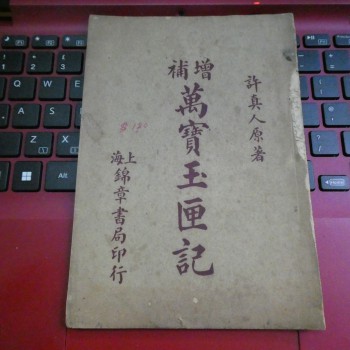 許真人原著
增補萬寶玉匣記
上海錦章書局印行